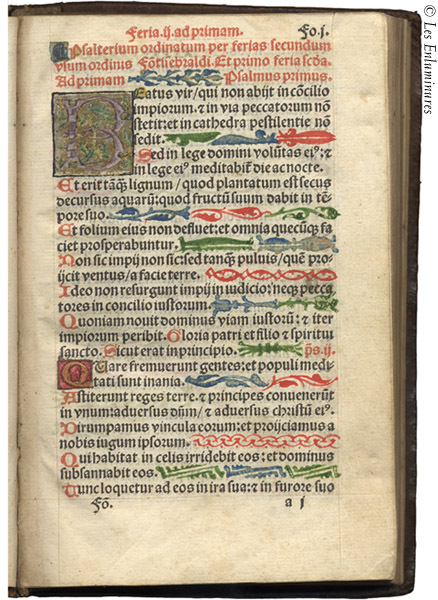 Feria.ij.ad primam. Fo.j.
Psalterium ordinatum per ferias secundum
vsum ordinis Fōtisebraldi. Et primo feria scđa.
Ad primam Psalmus primus.
Beatus vir/qui non abijt in cōcilio
impiorum: ⁊ in via peccatorum nō
stetit: et in cathedra pestilentie nō
sedit.
Sed in lege domini volūtas eiꝰ: ⁊
in lege eiꝰ meditabiť die ac nocte.
Et erit tāꝗ lignum/quod plantatum est secus
decursus aquarū: quod fructū suum dabit in tē-
pore suo.
Et folium eius non defluet: et omnia quecūꝗ fa
ciet prosperabuntur.
Non sic impij non sic: sed tanꝗ puluis/quē pro-
ijcit ventus/a facie terre.
Ideo non resurgunt impij in iudicio: neꝗ pecca
tores in concilio iustorum.
Quoniam nouit dominus viam iustorū: ⁊ iter
impiorum peribit. Gloria patri et filio ⁊ spiritui
sancto. Sicut erat in principio. ps̄.ij.
Quare fremuerunt gentes: et populi medi-
tati sunt inania.
Astiterunt reges terre. ⁊ principes conuenerūt
in vnum: aduersus dn̄m/⁊ aduersus christū eiꝰ.
Dirumpamus vincula eorum: et proijciamus a
nobis iugum ipsorum.
Qui habitat in celis irridebit eos: et dominus
subsannabit eos.
Tunc loquetur ad eos in ira sua: ⁊ in furore suo
Fō. a j
© Les Enluminures